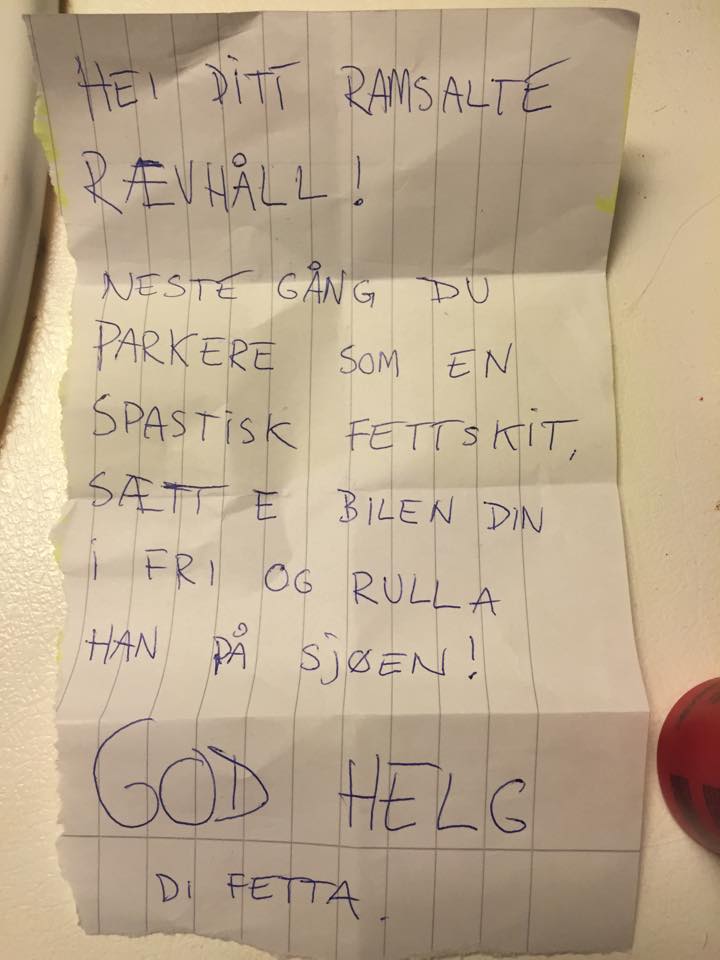 HEI DITT RAMSALTE
RÆVHÅLL!
NESTE GÅNG DU
PARKERE SOM EN
SPASTISK FETTSKIT,
SÆTT E BILEN DIN
I FRI OG RULLA
HAN PÅ SJØEN!
GOD HELG
DI FETTA.